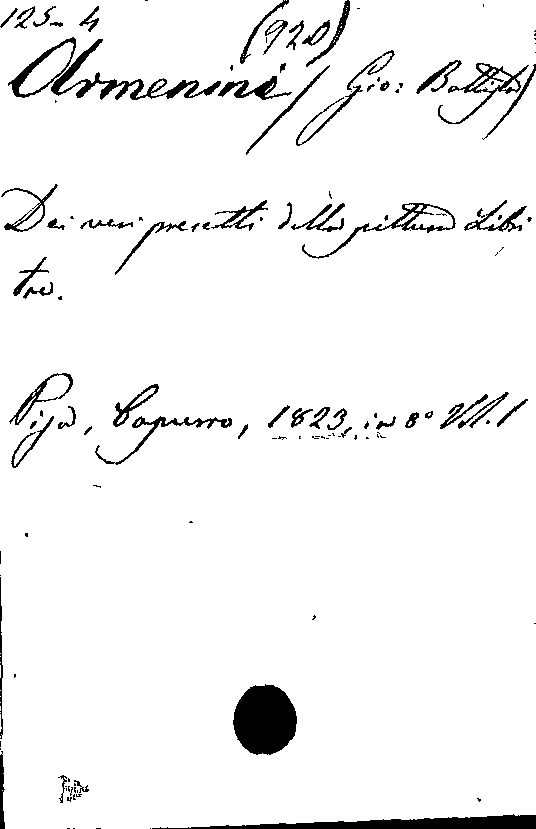 125-4
(920)
Armenini / Gio: Battista)
Dei veri precetti della pittura Libri
tre.
Pisa, Capurro, 1823, in 8° Vol. 1